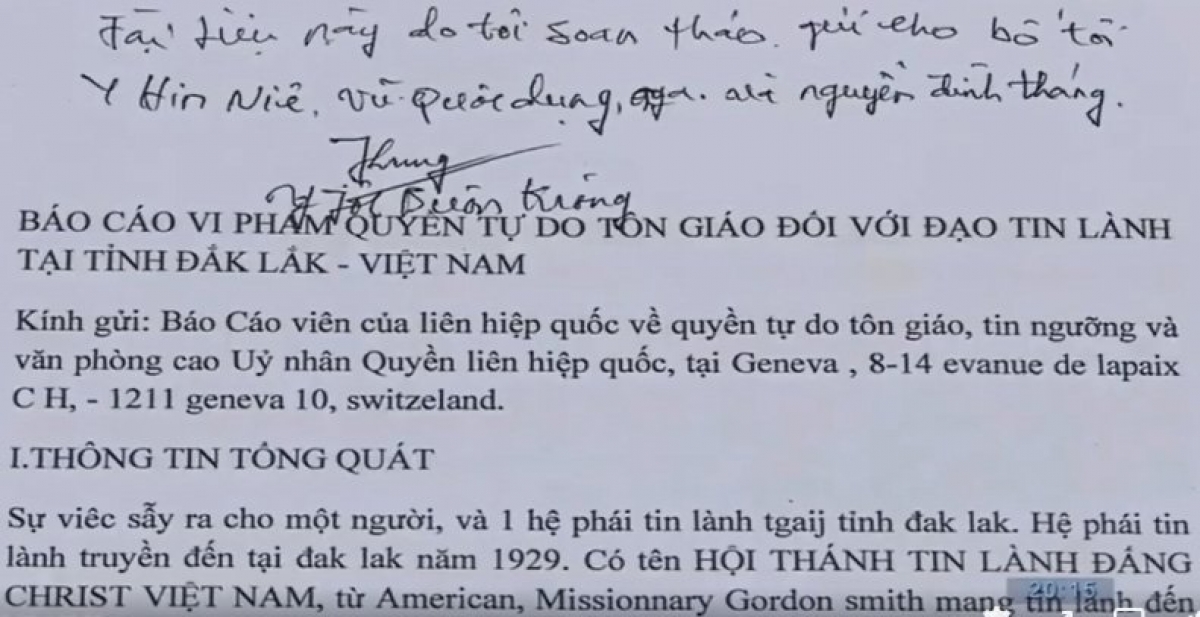 Tài liệu này do tôi soạn thảo. gửi cho bố tôi
Y Hin Niê, vũ quốc dụng, và nguyễn đình thắng.
BÁO CÁO VI PHẠM QUYỀN TỰ DO TÔN GIÁO ĐỐI VỚI ĐẠO TIN LÀNH
TẠI TỈNH ĐẮK LẮK - VIỆT NAM
Kính gửi: Báo Cáo viên của liên hiệp quốc về quyền tự do tôn giáo, tin ngưỡng và
văn phòng cao Uỷ nhân Quyền liên hiệp quốc, tại Geneva , 8-14 evanue de lapaix
C H, - 1211 geneva 10, switzeland.
I.THÔNG TIN TỔNG QUÁT
Sự viêc sẫy ra cho một người, và 1 hệ phái tin lành tgaij tinh đak lak. Hệ phái tin
lành truyền đến tại đak lak năm 1929. Có tên HỘI THÁNH TIN LÀNH ĐẤNG
CHRIST VIỆT NAM, từ American, Missionnary Gordon smith mang tin lành đến
20:15